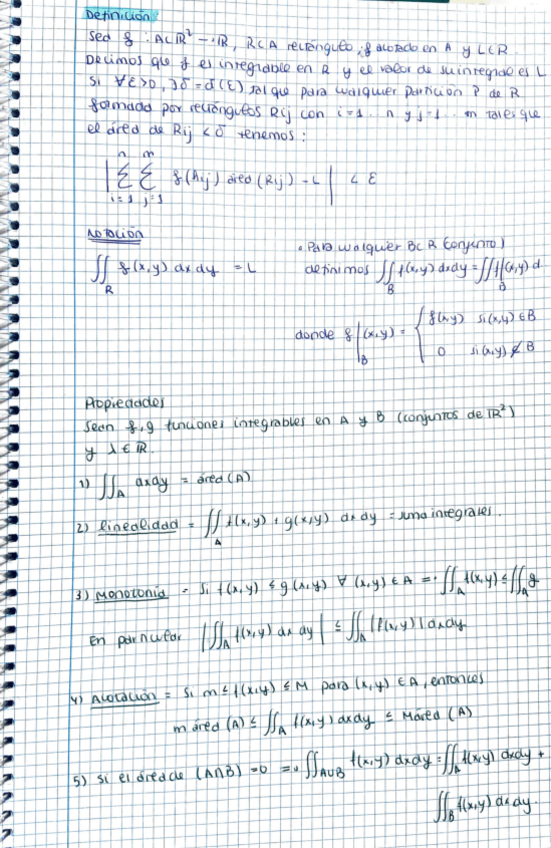 Definición:
Sea f : A⊂ℝ² → ℝ, R⊂A rectángulo, f acotado en A y L∈ℝ.
Decimos que f es integrable en R y el valor de su integral es L
si ∀ε>0, ∃δ=δ(ε) tal que para cualquier partición P de R
formada por rectángulos Rij con i=1...n y j=1...m tales que
el área de Rij < δ tenemos:
| Σ_{i=1}^{n} Σ_{j=1}^{m} f(Aij) área(Rij) - L | < ε
Notación
∬_R f(x,y) dx dy = L
• Para cualquier B⊂R (conjunto)
definimos ∬_B f(x,y) dxdy = ∬ f|_B (x,y) d
donde f|_B (x,y) = { f(x,y) si (x,y) ∈ B
0 si (x,y) ∉ B
Propiedades
Sean f, g funciones integrables en A y B (conjuntos de ℝ²)
y λ ∈ ℝ.
1) ∬_A dxdy = área (A)
2) linealidad = ∬_A f(x,y) + g(x,y) dx dy = suma integrales.
3) Monotonía = Si f(x,y) ≤ g(x,y) ∀ (x,y) ∈ A => ∬_A f(x,y) ≤ ∬_A g
En particular |∬_A f(x,y) dx dy| ≤ ∬_A |f(x,y)| dxdy
4) Acotación = Si m ≤ f(x,y) ≤ M para (x,y) ∈ A, entonces
m área (A) ≤ ∬_A f(x,y) dxdy ≤ M área (A)
5) Si el área de (A∩B) = 0 => ∬_{A∪B} f(x,y) dxdy = ∬_A f(x,y) dxdy +
∬_B f(x,y) dxdy.